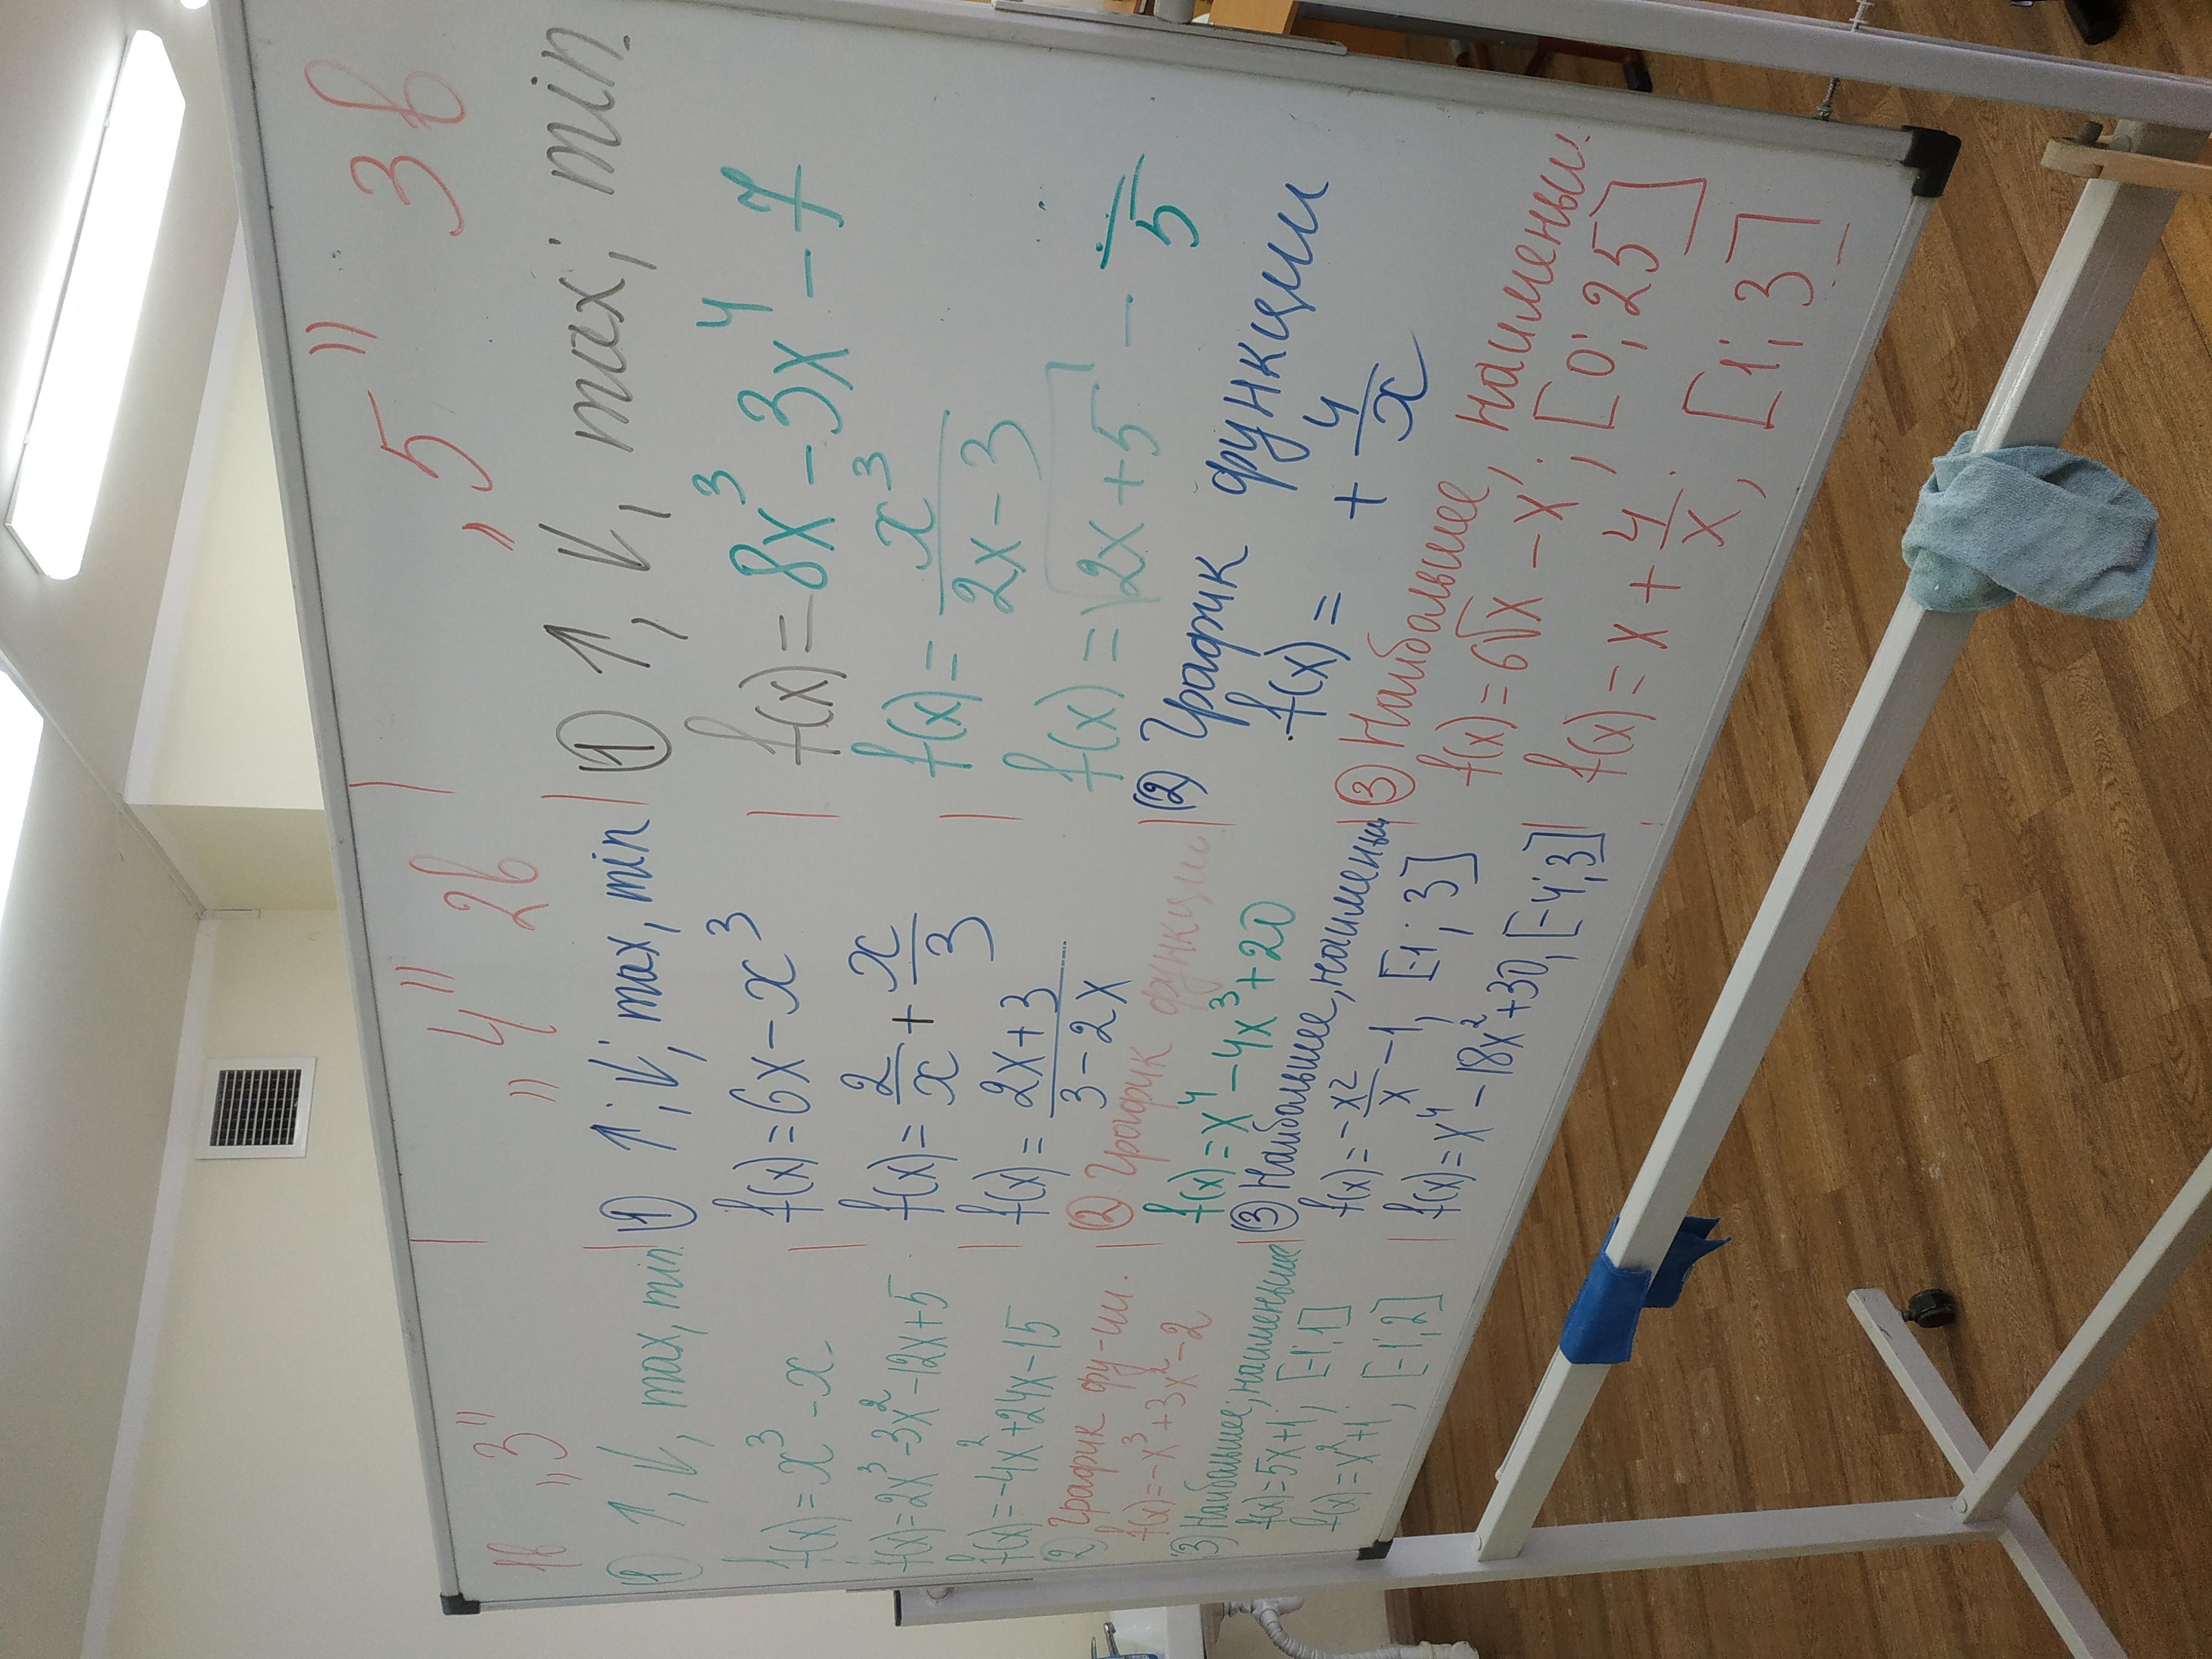 1в „3"
① ↑, ↓, max, min.
f(x) = x³ - x
f(x) = 2x³ - 3x² - 12x + 5
f(x) = -4x² + 24x - 15
2) График фу-ии.
f(x) = -x³ + 3x² - 2
3) Наибольшее, наименьшее
f(x) = 5x + 1, [-1; 1]
f(x) = x² + 1, [-1; 2]
„4" 2в
① ↑; ↓; max, min
f(x) = 6x - x³
f(x) = 2/x + x/3
f(x) = (2x + 3)/(3 - 2x)
② График функции
f(x) = x⁴ - 4x³ + 20
③ Наибольшее, наименьш
f(x) = -x²/x - 1, [-1; 3]
f(x) = x⁴ - 18x² + 30, [-4; 3]
„5" 3в
① ↑, ↓, max; min
f(x) = 8x³ - 3x⁴ - 7
f(x) = x³/(2x - 3)
f(x) = √(2x + 5) -
5
② График функции
f(x) = + 4/x
③ Наибольшее, наименьш.
f(x) = 6√x - x; [0; 25]
f(x) = x + 4/x; [1; 3]